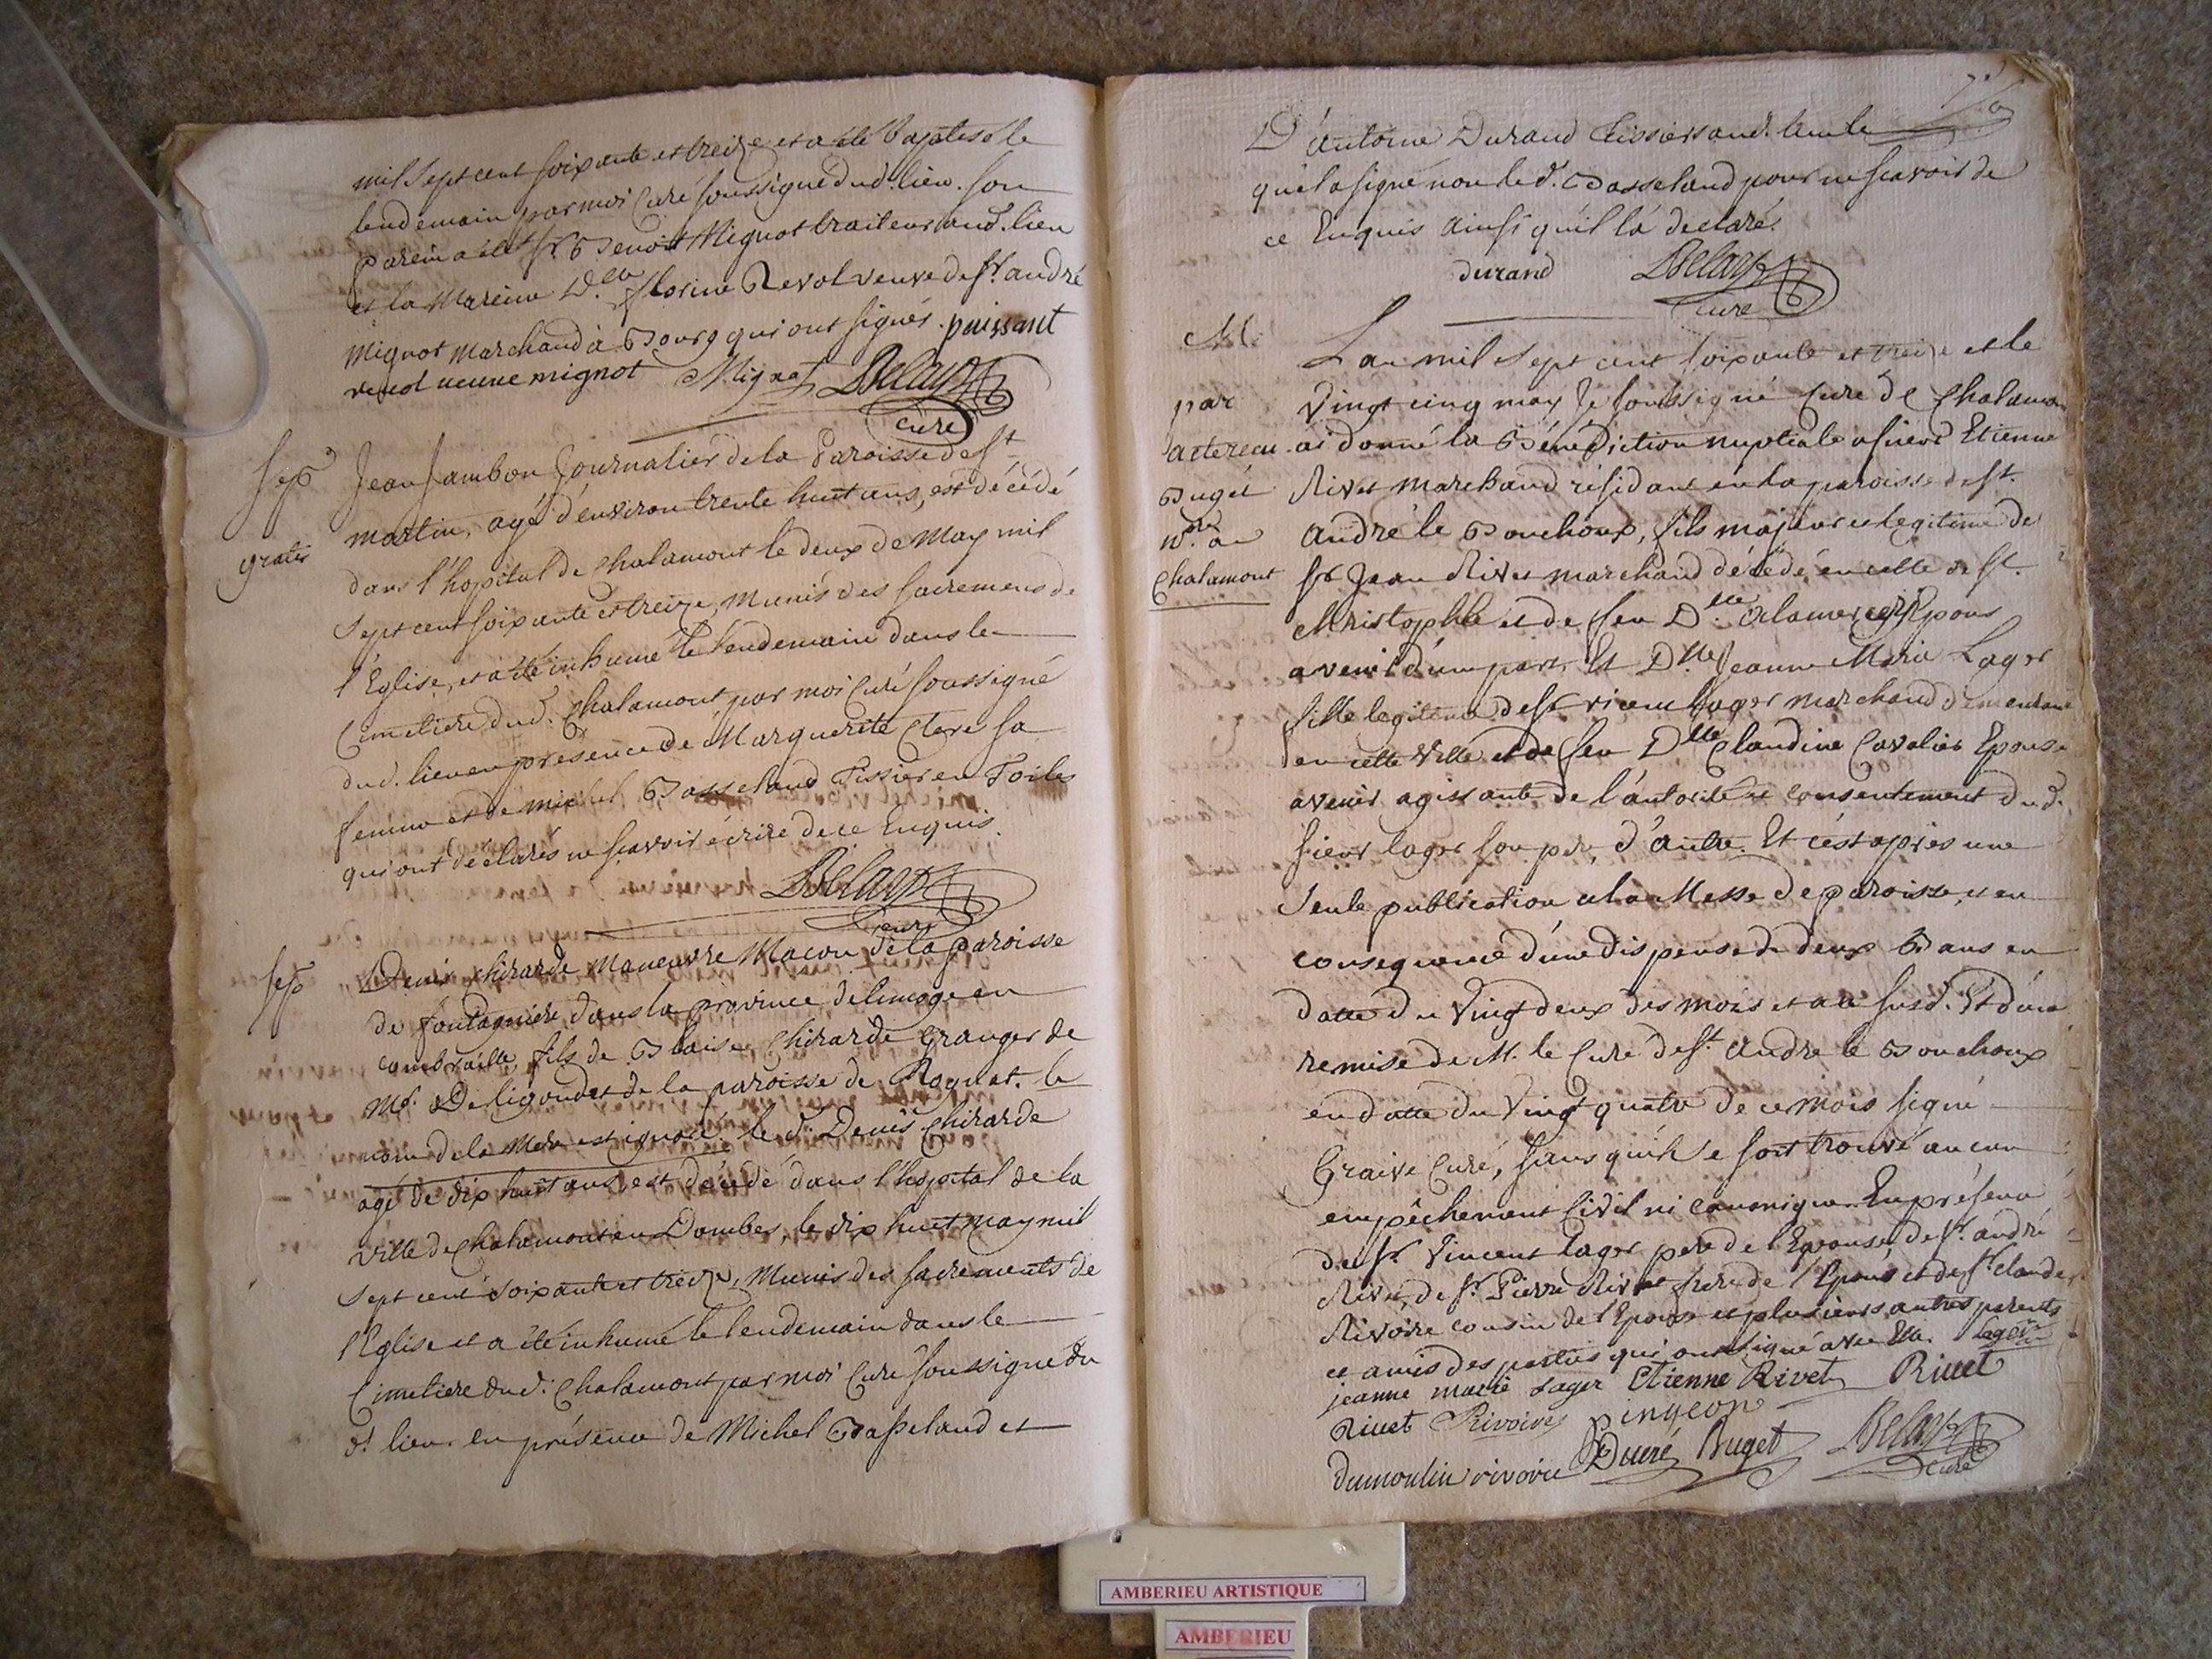 mil sept cent soixante et treize et a été baptisé le
lendemain par moi Curé soussigné dud. lieu. son
parein a été sr. Benoit Mignot traiteur aud. lieu
et la Mareine Dlle florine Revol veuve de sr. andré
mignot marchand à Bourg qui ont signés. puissant
revol veuve mignot Mignot Delaye
curé
sep.
Jean Jambon Journalier de la Paroisse de St
gratis
martin, agé d'environ trente huit ans, est décédé
dans l'hopital de Chalamont le deux de May mil
sept cent soixante et treize, munis des sacremens de
l'Eglise, et a été inhumé le lendemain dans le
Cimetiere dud. Chalamont, par moi Curé soussigné
dud. lieu en présence de Marguerite Clere sa
femme et de michel Basseland Tissier en Toiles
qui ont déclarés ne sçavoir écrire de ce Enquis.
Delaye
curé
sep.
Denis Chirarde maneuvre Macon de la paroisse
de fontagniere dans la province de limoge en
combraille, fils de Blaise Chirarde Granger de
Mr. Deligondet de la paroisse de Rognat. le
nom de la Mere est ignoré. le d. Denis Chirarde
agé de dix huit ans est décédé dans l'hopital de la
ville de Chalamont en Dombes, le dix huit may mil
sept cent soixante et treize, Munis des sacrements de
l'Eglise et a été inhumé le lendemain dans le
Cimetiere dud. Chalamont par moi Curé soussigné du
d. lieu. en présence de Michel Basseland et
D'antoine Durand Tissier aud. lieu le
quel a signé non le d. Basseland pour ne scavoir de
ce Enquis ainsi qu'il l'a declaré.
durand Delaye
curé
M.
L'an mil sept cent soixante et treize et le
par
vingt cinq may Je soussigné Curé de Chalamon
acte recu
ai donné la Bénédiction nuptiale a sieur Etienne
Buget
Rivet marchand résidant en la paroisse de St.
nre. a
André le Bouchoux, fils majeur et legitime de
Chalamont
sr. Jean Rivet marchand décédé en celle de St.
Christophle et de feu Dlle Epoux
avenir d'une part, Et Dlle Jeanne Marie Lager
fille legitime de sr vicent Lager marchand demeurant
en cette ville et de feu Dlle Claudine Cavalier Epouse
avenir agissante de l'autorité et consentement dud.
sieur lager son pere, d'autre. Et c'est après une
seule publication a la Messe de paroisse, et en
consequence d'une dispense de deux Bans en
datte du Vingt deux des mois et an susd. Et d'une
remise de M. le Curé de St. André le Bouchoux
en datte du Vingt quatre de ce mois signé
Graive Curé, sans qu'il se soit trouvé aucun
empêchement Civil ni canonique. En présence
de sr. Vincent Lager pere de l'Epouse, de sr. andré
Rivet, de sr. Pierre Rivet frere de l'Epoux et de sr. claude
Rivoire cousin de l'Epoux et plusieurs autres parents
et amis des parties qui ont signé avec Elle. Lager
jeanne marie Lager Etienne Rivet Rivet
Rivet Rivoire Pingeon
dumoulin rivoire Ducré Buget Delaye
curé
AMBERIEU ARTISTIQUE
AMBERIEU